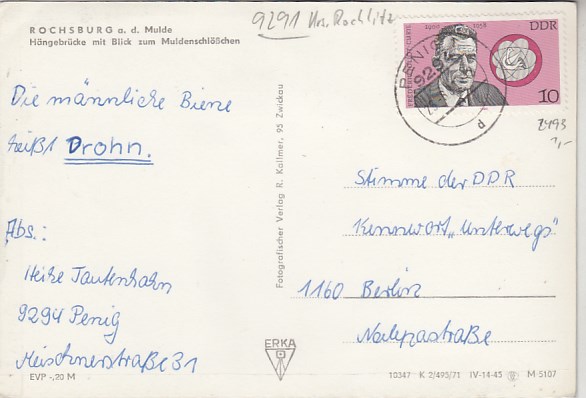 ROCHSBURG a. d. Mulde
Hängebrücke mit Blick zum Muldenschlößchen
9291 Krs. Rochlitz
1900 1958
DDR
10
9294
2493
1,-
Die männliche Biene
heißt Drohn.
Abs.:
Heike Tautenhahn
9294 Penig
Meischnerstraße 31
EVP -,20 M
Fotografischer Verlag R. Kallmer, 95 Zwickau
Stimme der DDR
Kennwort „Unterwegs"
1160 Berlin
Nalepastraße
ERKA
10347 K 2/495/71 IV-14-45 M 5107